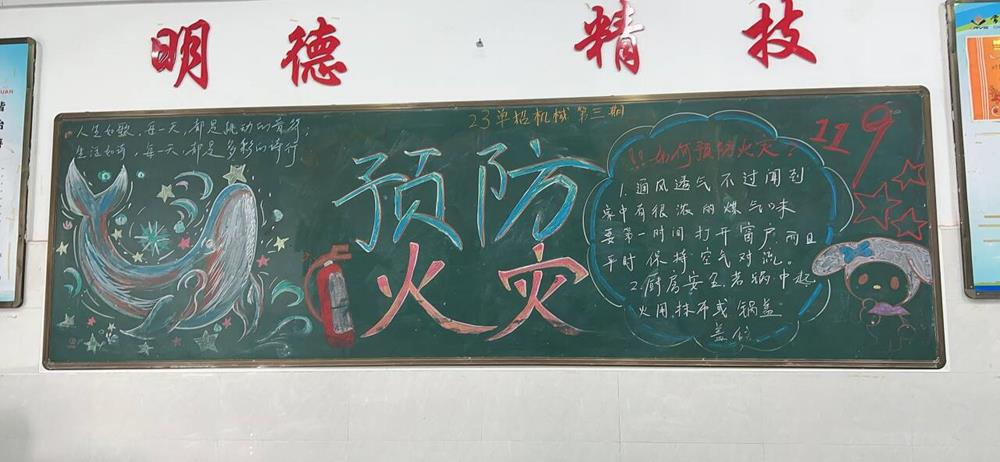 明德 精技
23单招机械 第三期
人生如歌，每一天，都是跳动的音符；
生活如诗，每一天，都是多彩的诗行
预防
火灾
119
!! 如何预防火灾？
1. 通风透气不过闻到
家中有很浓的煤气味
要第一时间打开窗户 而且
平时保持空气对流。
2. 厨房安全 若锅中起
火用抹布或锅盖
盖